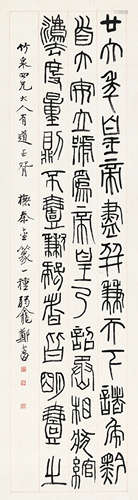 廿六年皇帝盡并兼天下諸侯黔
首大安立號為皇帝乃詔丞相狀綰
灋度量則不壹歉疑者皆明壹之
竹泉四兄大人有道正
橅秦金篆一種 龕鄭